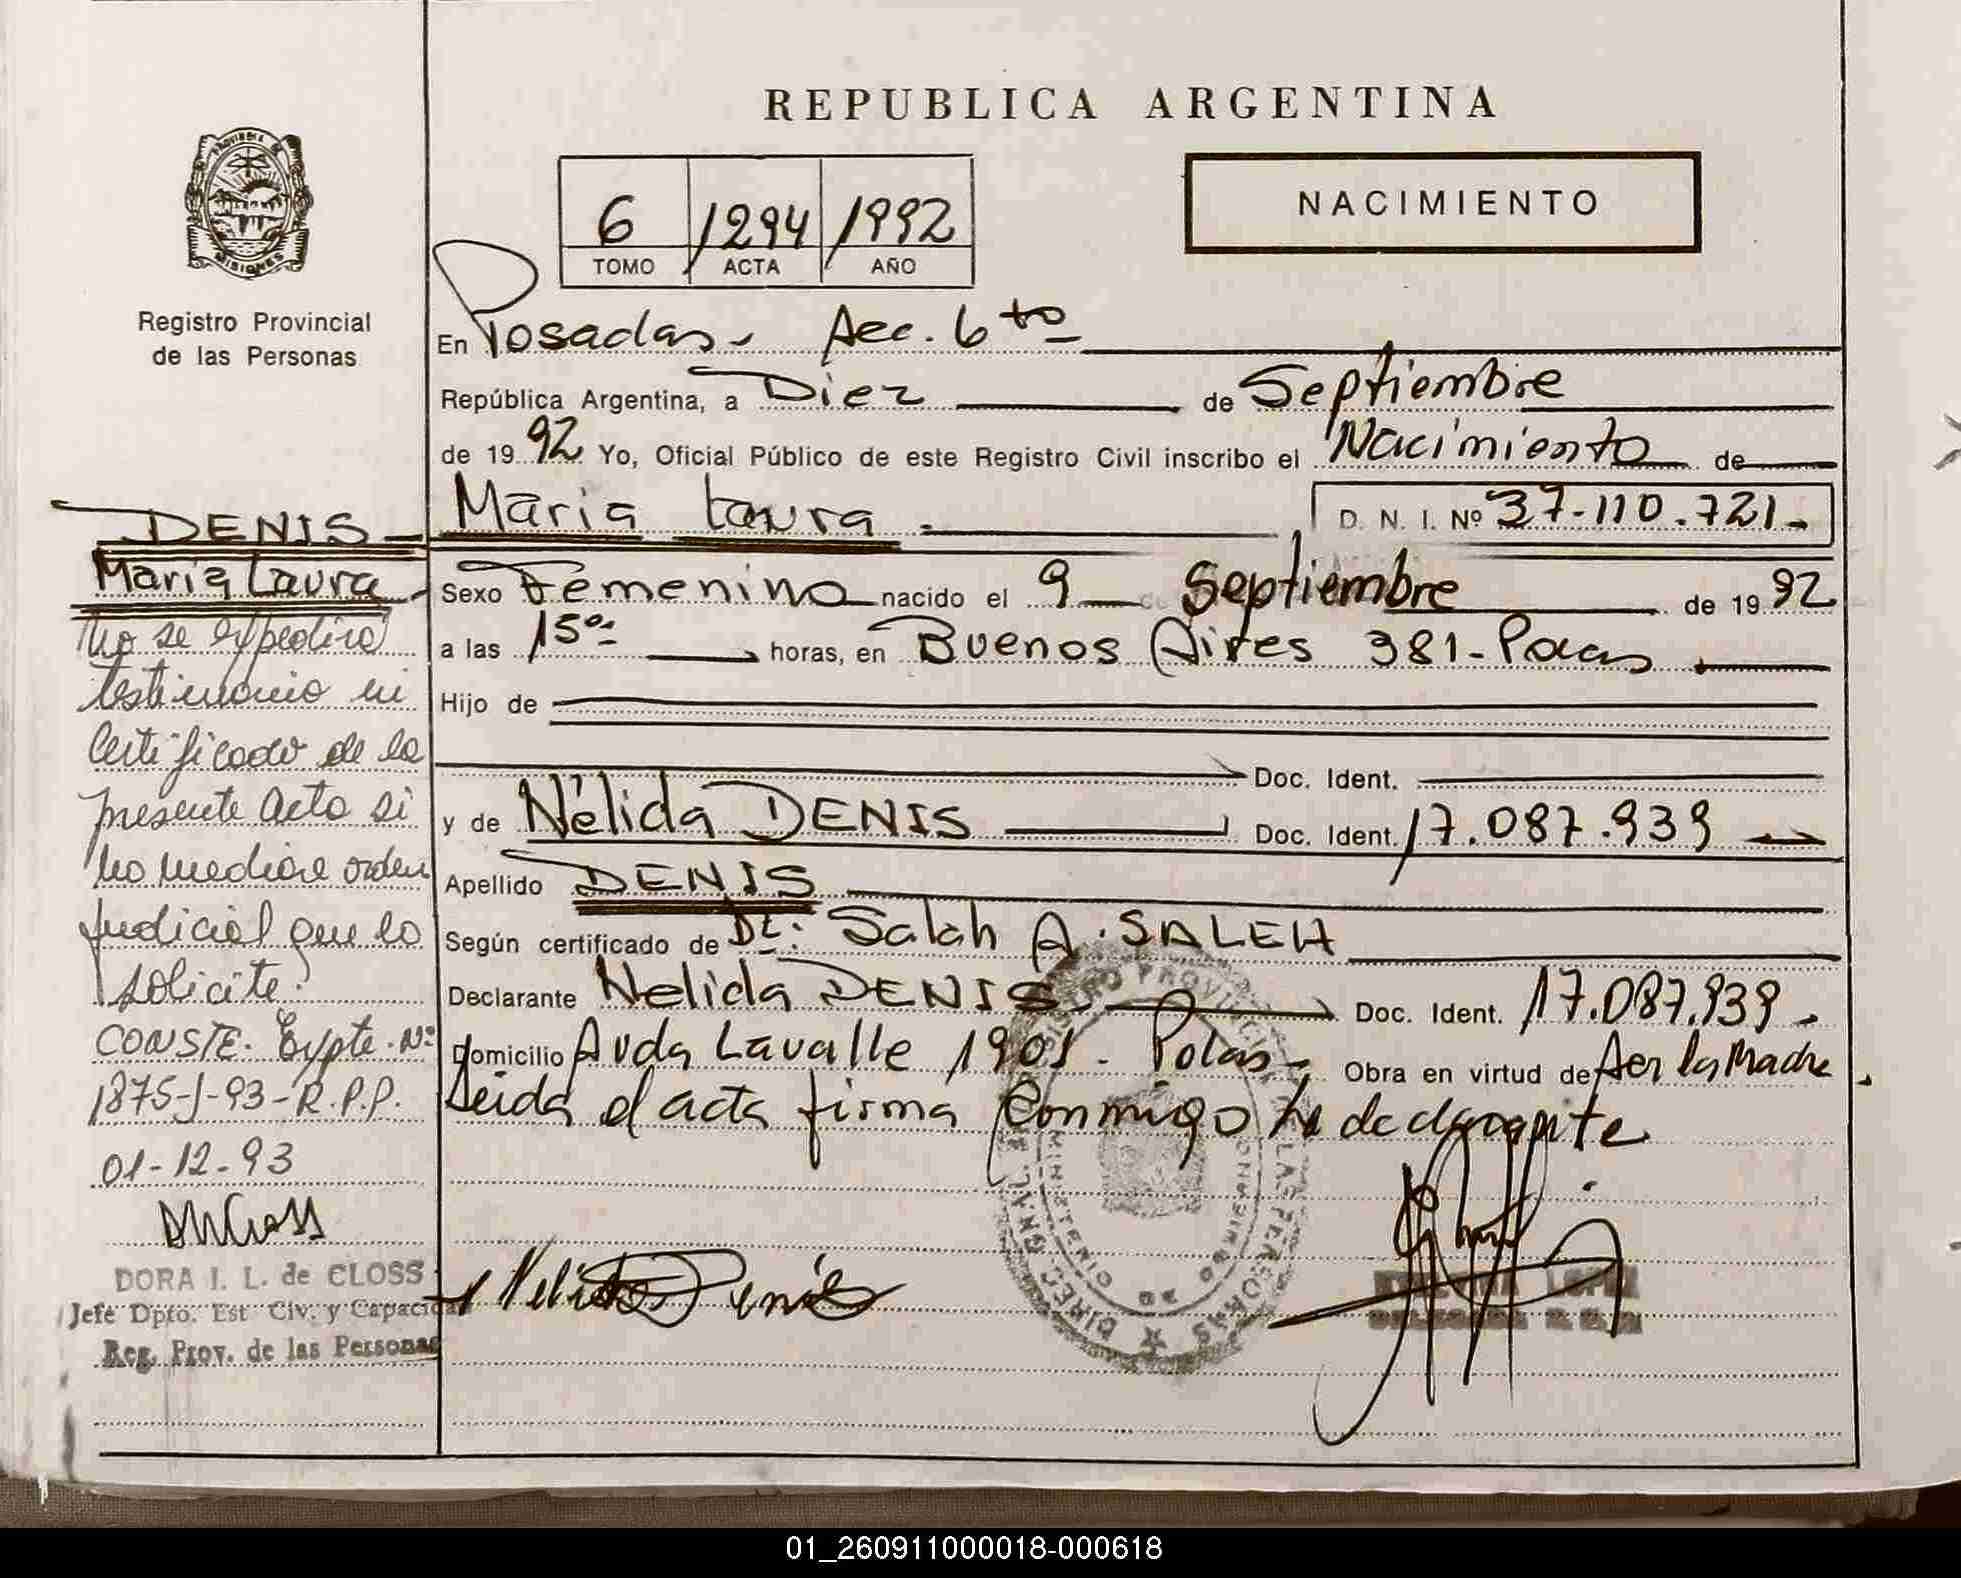 REPUBLICA ARGENTINA
PROVINCIA DE
MISIONES
Registro Provincial
de las Personas
6 1294 1992
TOMO ACTA AÑO
NACIMIENTO
En Posadas - Sec. 6to
República Argentina, a Diez de Septiembre
de 1992 Yo, Oficial Público de este Registro Civil inscribo el Nacimiento de
Maria Laura D. N. I. Nº 37-110.721-
Sexo Femenino nacido el 9 de Septiembre de 1992
a las 15 horas, en Buenos Aires 381-Pdas
Hijo de
Doc. Ident.
y de Nélida DENIS Doc. Ident. 17.087.939
Apellido DENIS
Según certificado de Dr: Salah A. SALEH
Declarante Nelida DENIS Doc. Ident. 17.087.939
Domicilio Avda Lavalle 1901 - Pdas - Obra en virtud de ser la Madre.
Leida el acta firma conmigo la declarante
Nelida Denis
DENIS
Maria Laura
No se expedirá
testimonio ni
certificado de la
presente acta si
no mediare orden
judicial que lo
solicite.
CONSTE. Expte. Nº
1875-J-93-R.P.P.
01-12-93
DORA I. L. de CLOSS
Jefe Dpto. Est Civ. y Capacidad
Reg. Prov. de las Personas
01_260911000018-000618